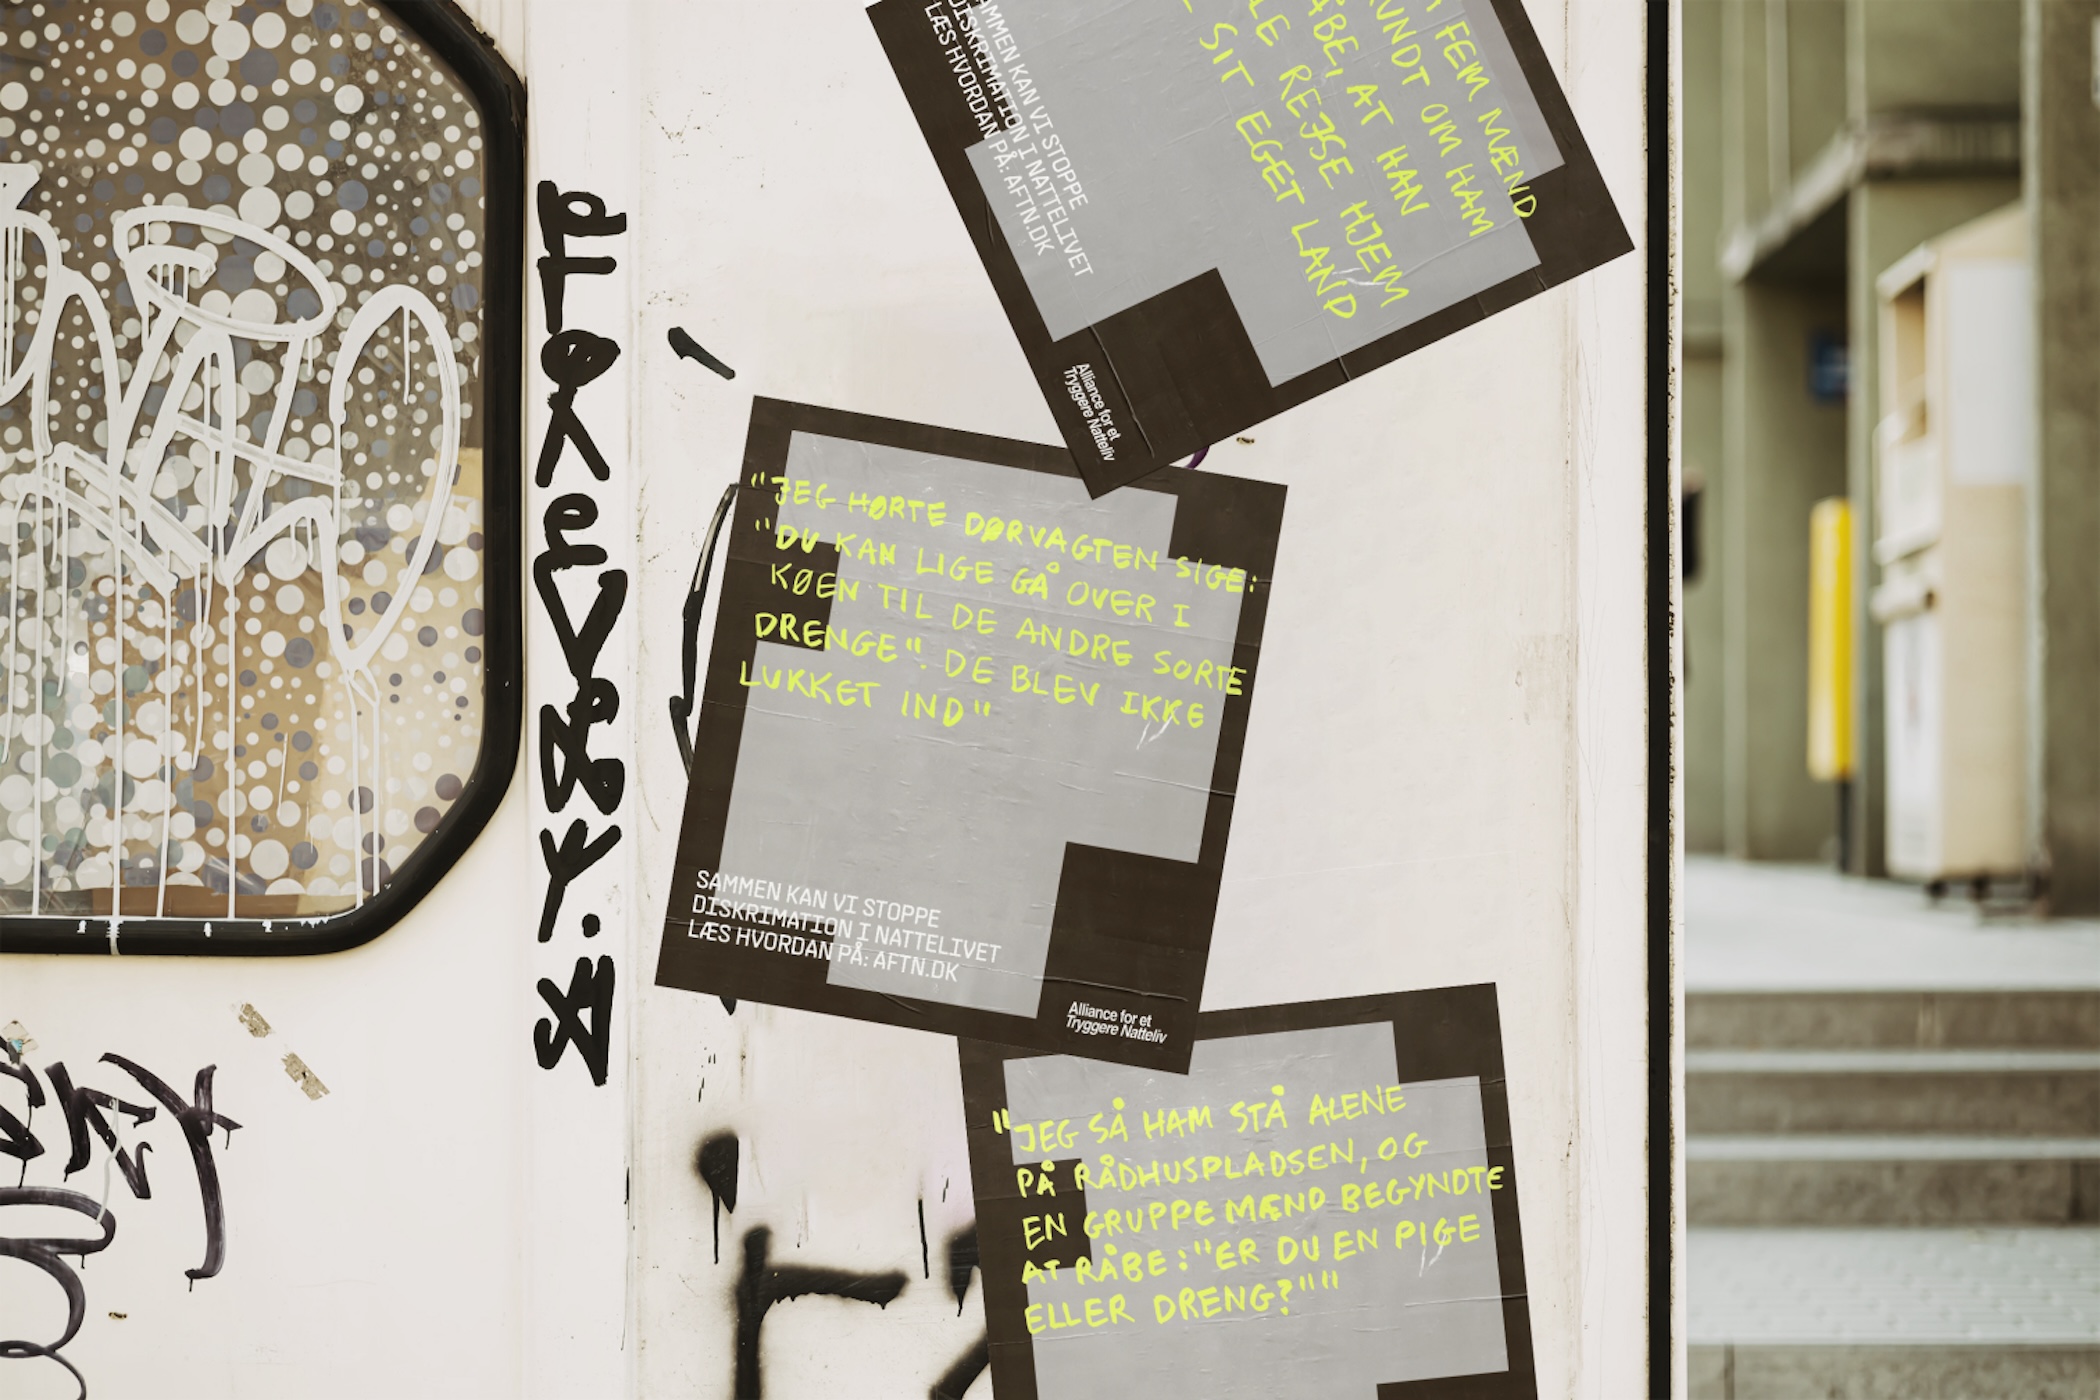 FEM MÆND
RUNDT OM HAM
ÅBE, AT HAN
LE REJSE HJEM
SIT EGET LAND
AMMEN KAN VI STOPPE
DISKRIMATION I NATTELIVET
LÆS HVORDAN PÅ: AFTN.DK
Alliance for et
Tryggere Natteliv
"JEG HØRTE DØRVAGTEN SIGE:
"DU KAN LIGE GÅ OVER I
KØEN TIL DE ANDRE SORTE
DRENGE". DE BLEV IKKE
LUKKET IND"
SAMMEN KAN VI STOPPE
DISKRIMATION I NATTELIVET
LÆS HVORDAN PÅ: AFTN.DK
Alliance for et
Tryggere Natteliv
"JEG SÅ HAM STÅ ALENE
PÅ RÅDHUSPLADSEN, OG
EN GRUPPE MÆND BEGYNDTE
AT RÅBE: "ER DU EN PIGE
ELLER DRENG?""